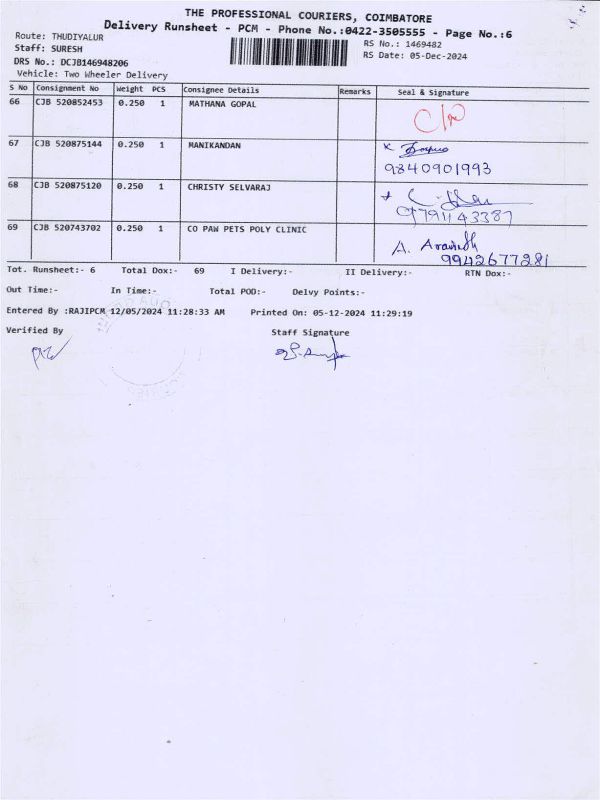 THE PROFESSIONAL COURIERS, COIMBATORE
Delivery Runsheet - PCM - Phone No.:0422-3505555 - Page No.:6
Route: THUDIYALUR
RS No.: 1469482
Staff: SURESH
RS Date: 05-Dec-2024
DRS No.: DCJB146948206
Vehicle: Two Wheeler Delivery
S No Consignment No Weight PCS Consignee Details Remarks Seal & Signature
66 CJB 520852453 0.250 1 MATHANA GOPAL
67 CJB 520875144 0.250 1 MANIKANDAN
9840901993
68 CJB 520875120 0.250 1 CHRISTY SELVARAJ
9791143387
69 CJB 520743702 0.250 1 CO PAW PETS POLY CLINIC A. Aravindh
9942677281
Tot. Runsheet:- 6 Total Dox:- 69 I Delivery:- II Delivery:- RTN Dox:-
Out Time:- In Time:- Total POD:- Delvy Points:-
Entered By :RAJIPCM 12/05/2024 11:28:33 AM Printed On: 05-12-2024 11:29:19
Verified By Staff Signature